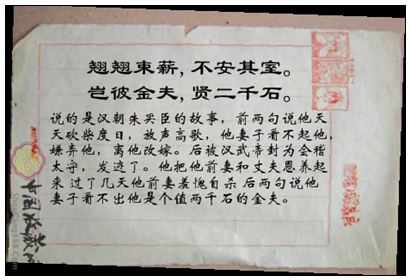 翘翘束薪，不安其室。
岂彼金夫，贤二千石。
说的是汉朝朱买臣的故事，前两句说他天
天砍柴度日，放声高歌，他妻子看不起他，
嫌弃他，离他改嫁。后被汉武帝封为会稽
太守，发迹了。他把他前妻和丈夫恩养起
来 过了几天他前妻羞愧自杀 后两句说他
妻子看不出他是个值两千石的金夫。